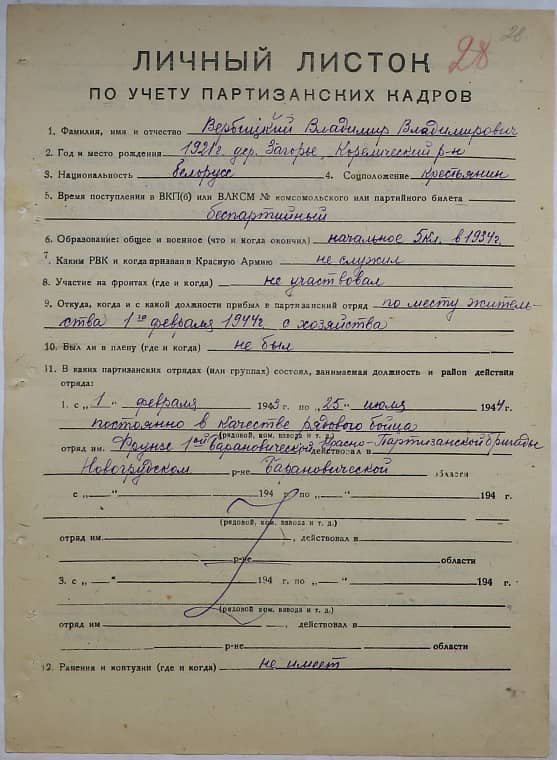 28 28
ЛИЧНЫЙ ЛИСТОК
ПО УЧЕТУ ПАРТИЗАНСКИХ КАДРОВ
1. Фамилия, имя и отчество Вербицкий Владимир Владимирович
2. Год и место рождения 1921г. дер. Загорье, Кореличский р-н
3. Национальность белорусс 4. Соцположение крестьянин
5. Время поступления в ВКП(б) или ВЛКСМ № комсомольского или партийного билета
беспартийный
6. Образование: общее и военное (что и когда окончил) начальное 5кл. в 1934г.
7. Каким РВК и когда призван в Красную Армию не служил
8. Участие на фронтах (где и когда) не участвовал
9. Откуда, когда и с какой должности прибыл в партизанский отряд по месту житель-
ства 1го февраля 1944г с хозяйства
10. Был ли в плену (где и когда) не был
11. В каких партизанских отрядах (или группах) состоял, занимаемая должность и район действия
отряда:
1. с „ 1 “ февраля 194 г. по „ 25 “ июля 1944 г.
постоянно в качестве рядового бойца
(рядовой, ком. взвода и т. д.)
отряд им. Фрунзе 1ой Барановической Красно-Партизанской бригады действовал в
Новогрудском р-не Барановической области
с „ “ 194 г. по „ “ 194 г.
(рядовой, ком. взвода и т. д.)
отряд им. , действовал в
р-не области
3. с „ “ 194 г. по „ “ 194 г.
(рядовой ком. взвода и т. д.)
отряд им , действовал в
р-не области
12. Ранения и контузии (где и когда) не имеет